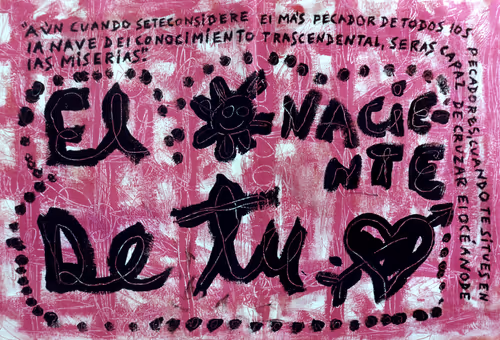 "AÚN CUANDO SETECONSIDERE El MÁS PECADOR DE TODOS lOS
PECADORES, CUANDO TE SITUES EN
lA NAVE DEl CONOCIMIENTO TRASCENDENTAL, SERAS
CAPAZ DE CRUZAR El OCÉANO DE
lAS MISERIAS."
El NACIE
NTE
De tu